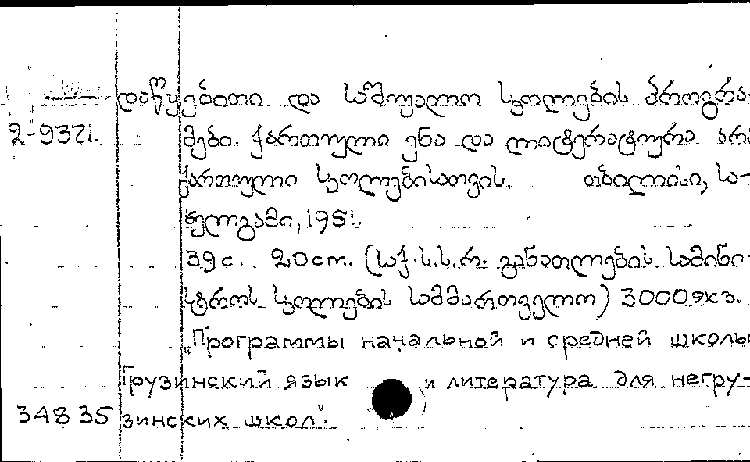 დაწყებითი და საშუალო სკოლების პროგრა-
2-9321. მები. ქართული ენა და ლიტერატურა არა
ქართული სკოლებისათვის. თბილისი, სა-
ხელგამი, 1951.
39 c. 20 cm. (საქ. ს. ს. რ. განათლების სამინი-
სტროს სკოლების სამმართველო) 3000 экз.
„Программы начальной и средней школы
Грузинский язык и литература для негру-
34835 зинских школ".